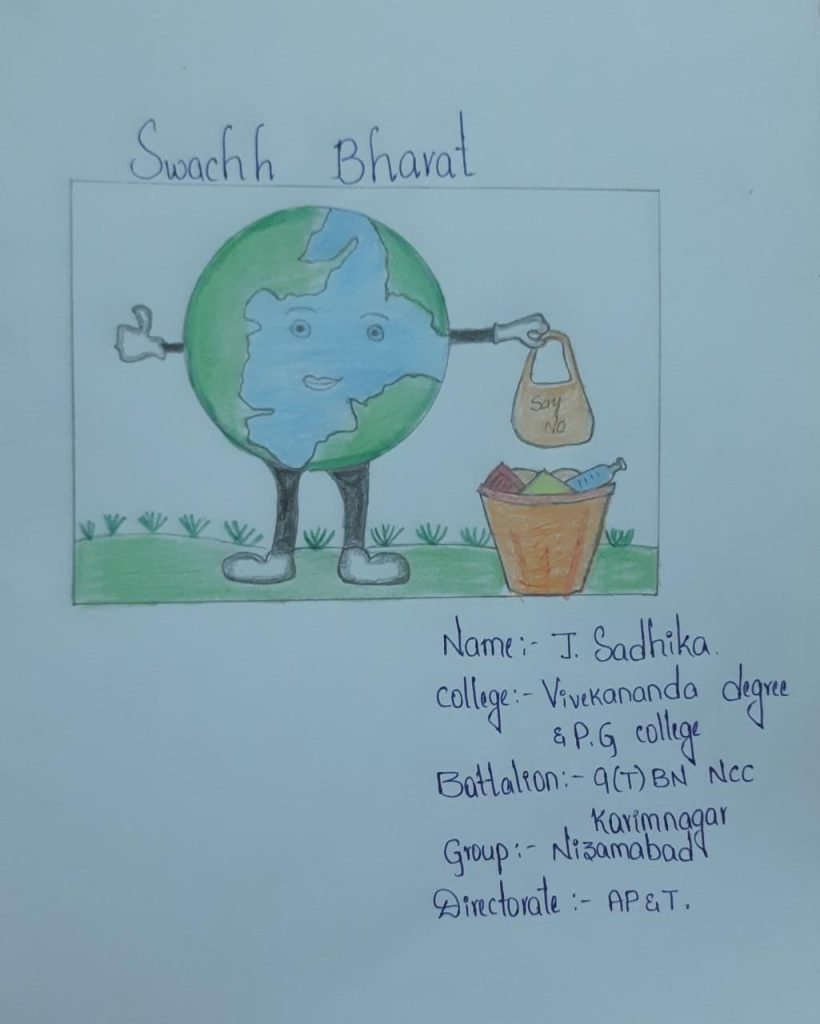 Swachh Bharat
Say
No
Name:- J. Sadhika.
College:- Vivekananda degree
& P.G college
Battalion:- 9(T) BN NCC
Karimnagar
Group:- Nizamabad
Directorate:- AP&T.